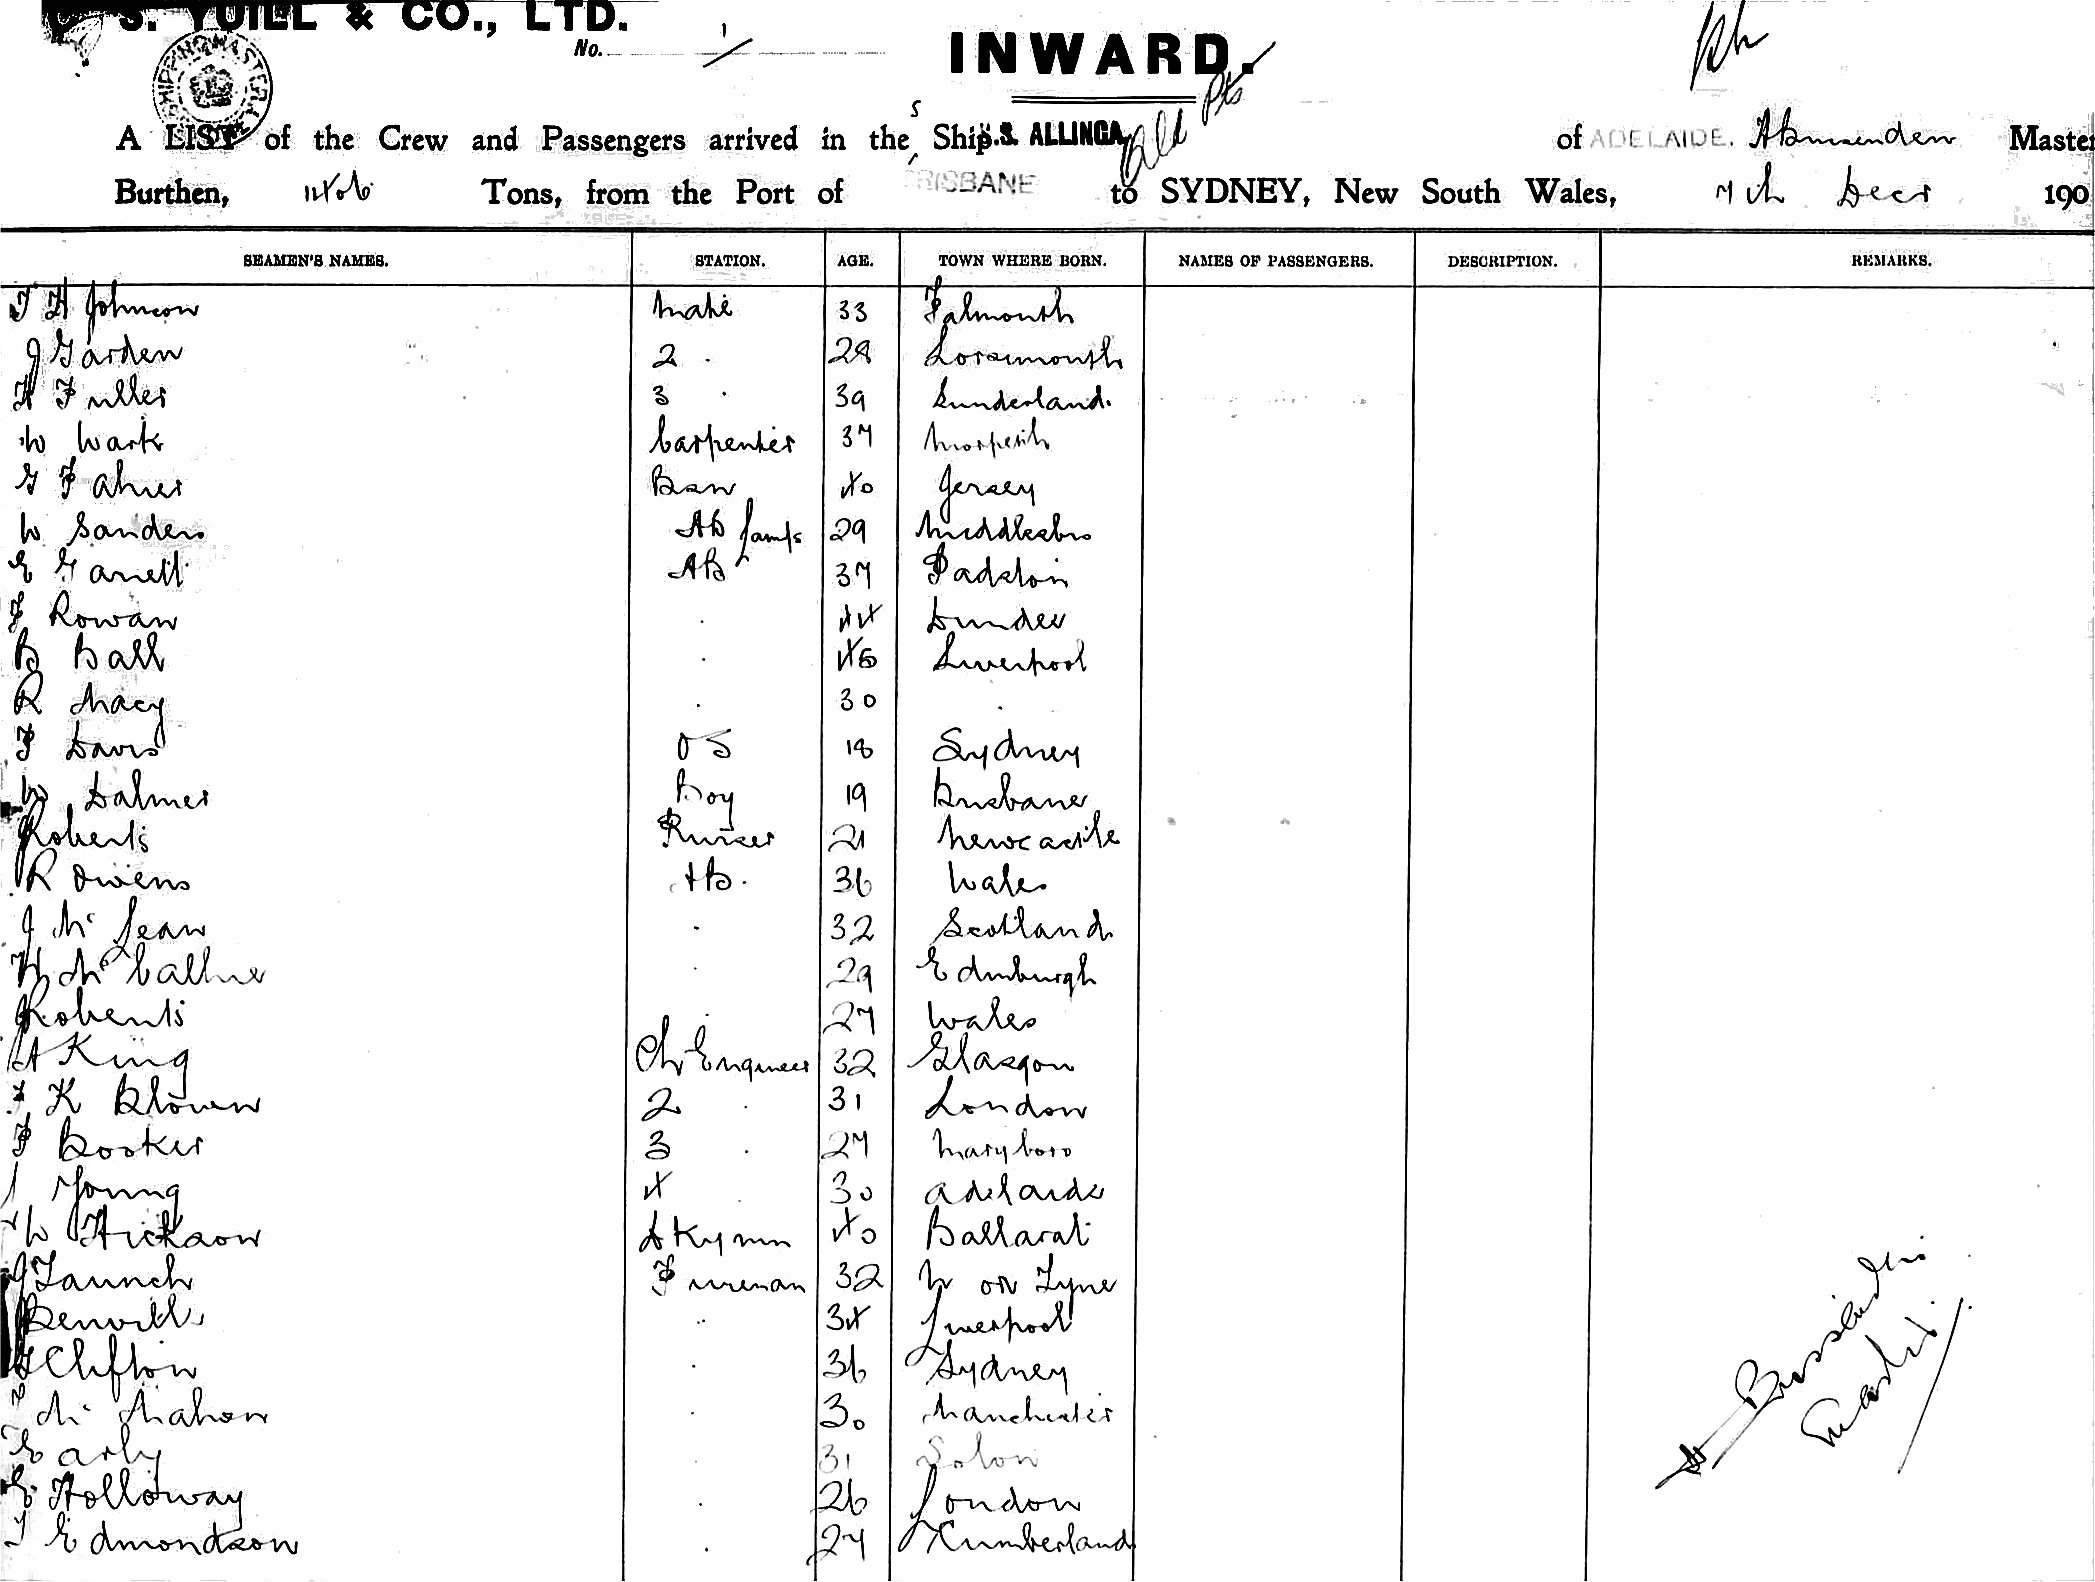 S. YUILL & CO., LTD.
No. 1
INWARD.
Old Pts
SHIPPING MASTER
A LIST of the Crew and Passengers arrived in the S Ship S.S. ALLINGA of ADELAIDE. Master
Burthen, 1406 Tons, from the Port of BRISBANE to SYDNEY, New South Wales, 7th Decr 190
SEAMEN'S NAMES. STATION. AGE. TOWN WHERE BORN. NAMES OF PASSENGERS. DESCRIPTION. REMARKS.
T H Johnson Mate 33 Falmouth
J Garden 2 . 28 Lossiemouth
H Fuller 3 . 39 Sunderland.
W Wark Carpenter 37 Morpeth
G Bsn 40 Jersey
W Sanders AB Lamps 29 Middlesbro
E Garrett AB 37 Padstow
F Rowan . 44 Dundee
B Ball . 46 Liverpool
R Macy . 30 .
F Davis OS 18 Sydney
W Dalmer Boy 19 Brisbane
J Roberts Purser 21 Newcastle
R Owens AB. 36 Wales
J McLean . 32 Scotland
H McCallue . 29 Edinburgh
J Roberts . 27 Wales
A King Ch Engineer 32 Glasgow
F K Blown 2 . 31 London
F Booker 3 . 27 Maryboro
Young 4 . 30 Adelaide
W Hickson Dkymn 40 Ballarat
J Launch Fireman 32 N on Tyne
J Benville .. 34 Liverpool
G Clifton . 36 Sydney
Mc Mahon . 30 Manchester
E Early . 31 Solon
E Holloway . 26 London
T Edmondson . 27 Cumberland